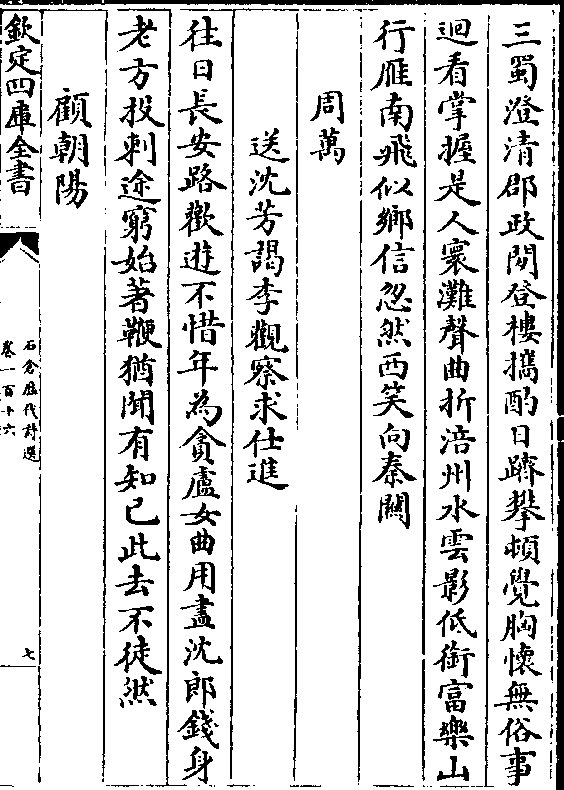 三蜀澄清郡政閒登樓攜酌日躋攀頓覺胸懷無俗事
迴看掌握是人寰灘聲曲折涪州水雲影低銜富樂山
行雁南飛似鄉信忽然西笑向秦關
周萬
送沈芳謁李觀察求仕進
往日長安路歡遊不惜年為貪盧女曲用盡沈郎錢身
老方投刺途窮始著鞭猶聞有知己此去不徒然
顧朝陽
欽定四庫全書
石倉歴代詩選
卷一百十六
七